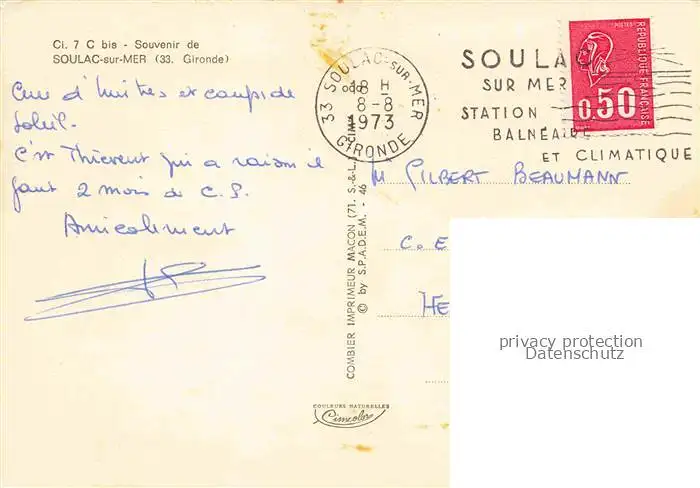 Ci. 7 C bis - Souvenir de
SOULAC-sur-MER (33. Gironde)
Cure d'huîtres et coups de
soleil.
C'est Thievent qui a raison il
faut 2 mois de C.P.
Amicalement
COMBIER IMPRIMEUR MACON (71. S.-&-L.) "CIM"
© by S.P.A.D.E.M. - 46
COULEURS NATURELLES
Cimcolor
33 SOULAC-SUR-MER
18 H
8-8
1973
GIRONDE
SOULAC
SUR MER
STATION
BALNÉAIRE
ET CLIMATIQUE
POSTES
RÉPUBLIQUE FRANÇAISE
0,50
M GILBERT BEAUMANN
C. E
HE
privacy protection
Datenschutz